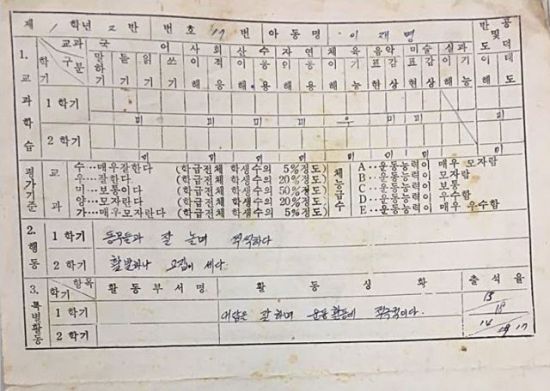 제 1 학년 2 반 번호 17 번 아동명 이재명
교과 국어 사회 산수 자연 체육 음악 미술 실과 반공 및 도덕
구분 학기 말하기 듣기 읽기 쓰기 이해 적응 이해 응용 이해 응용 이해 기능 표현 감상 표현 감상 이해 기능 이해 태도
1. 교과학습
1 학기
미 미 미 미 우 미 미 미
2 학기
미 미 미 미 미 미 미
평가기준 교과
수…매우잘한다 (학급전체 학생수의 5%정도)
우…잘한다 (학급전체 학생수의 20%정도)
미…보통이다 (학급전체 학생수의 50%정도)
양…모자란다 (학급전체 학생수의 20%정도)
가…매우모자란다 (학급전체 학생수의 5%정도)
체능급수
A…운동능력이 매우 모자람
B…운동능력이 모자람
C…운동능력이 보통
D…운동능력이 우수함
E…운동능력이 매우 우수함
2. 행동
1 학기 동무들과 잘 놀며 씩씩하다
2 학기 활발하나 고집이 세다.
3. 특별활동
학기 항목 활동부서명 활동상황 출석율
1 학기 대답을 잘 하며 운동활동에 적극적이다.
2 학기